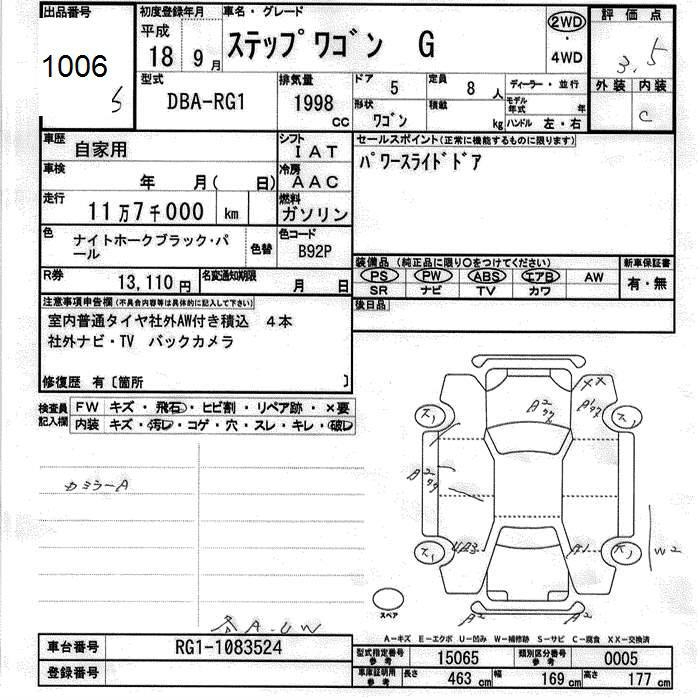 出品番号 初度登録年月 車名・グレード 2WD 評価点
1006 平成 18 9月 ステップワゴン G ・ 3.5
S 4WD
型式 排気量 ドア 5 定員 8人 ディーラー・並行 外装 内装
DBA-RG1 1998 CC 形状 ワゴン 積載 kg モデル年式 年 C
ハンドル 左・右
車歴 自家用 シフト IAT セールスポイント(正常に機能するものに限ります)
車検 年 月( 日) 冷房 AAC パワースライドドア
走行 11万7千000 km 燃料 ガソリン
色 ナイトホークブラック・パール 色替 色コード B92P
装備品 (純正品に限り○をつけてください) 新車保証書
R券 13,110円 名変通知期限 月 日 PS PW ABS エアB AW 有・無
SR ナビ TV カワ
注意事項申告欄(不具合内容等は具体的に記入して下さい) 後日品
室内普通タイヤ社外AW付き積込 4本
社外ナビ・TV バックカメラ
修復歴 有〔箇所 〕
検査員記入欄 FW キズ・飛石・ヒビ割・リペア跡・×要
内装 キズ・汚レ・コゲ・穴・スレ・キレ・破レ
XX
A2 A1
A2
カミラーA
A1 W2
スペア
A2 A2
各A.UW
A-キズ E-エクボ U-凹み W-補修跡 S-サビ C-腐食 XX-交換済
車台番号 RG1-1083524 型式指定番号 参考 15065 類別区分番号 参考 0005
登録番号 車庫証明用 参考 長さ 463 cm 幅 169 cm 高さ 177 cm